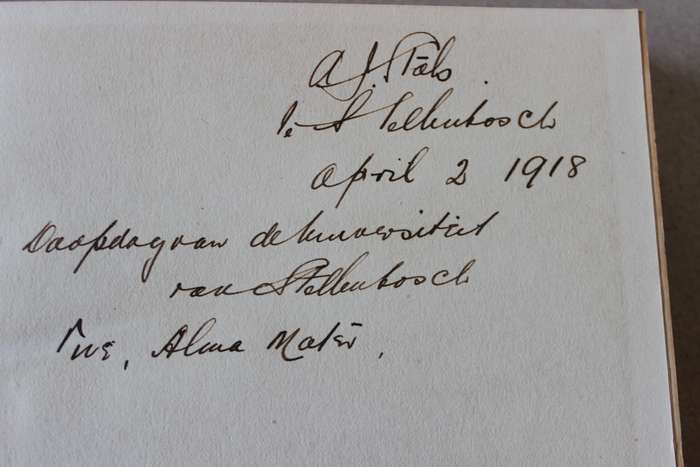 A J. Stals.
te Stellenbosch
April 2 1918
Doopdag van de Universiteit
van Stellenbosch
Ave, Alma Mater.